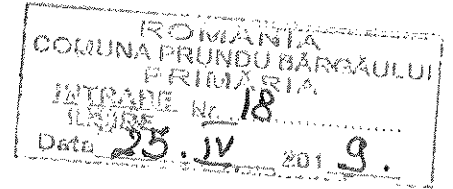 ROMÂNIA
COMUNA PRUNDU BÂRGĂULUI
PRIMĂRIA
INTRARE
IEȘIRE Nr. 18
Data 25. IV 2019.